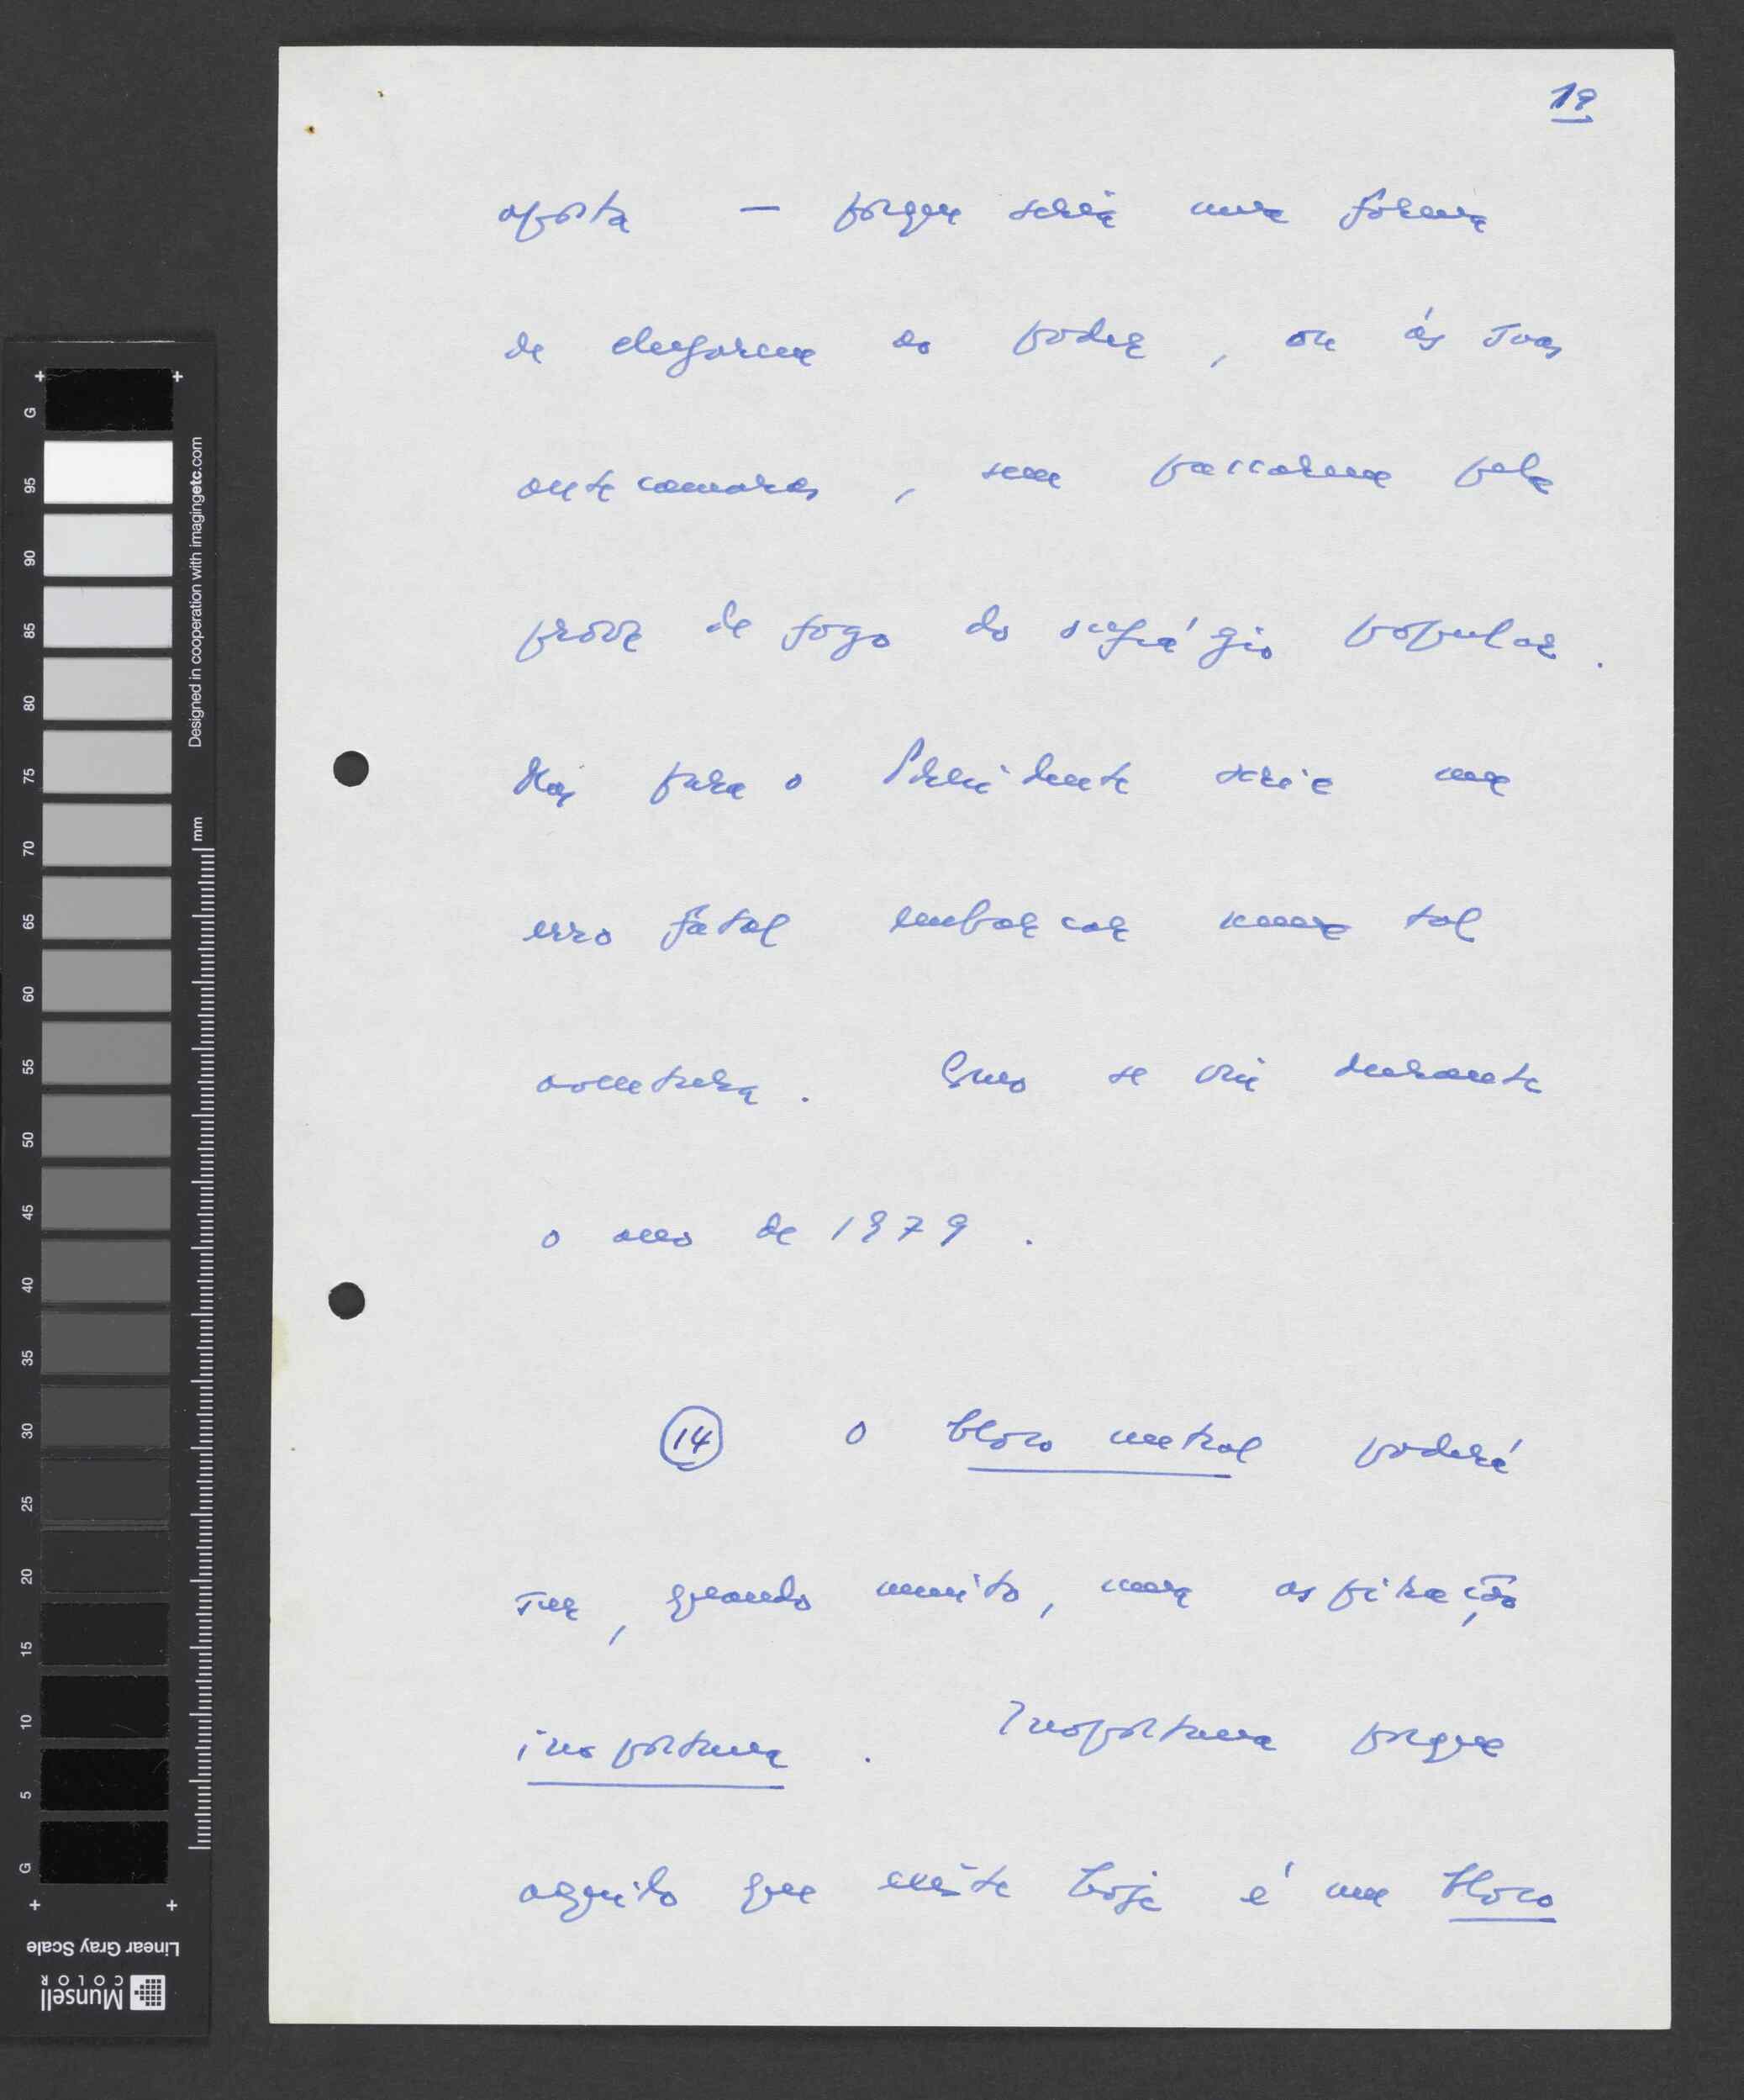 19
aposta — porque seria uma forma
de chegarem ao poder, ou às suas
antecamaras, sem passarem pela
prova de fogo do sufrágio popular.
Mas para o Presidente seria um
erro fatal embarcar numa tal
aventura. Como se viu durante
o ano de 1979.
14 O bloco central poderá
ser, quando muito, uma aspiração
inoportuna. Inoportuna porque
aquilo que existe hoje é um bloco
G
95
90
85
80
75
70
65
60
55
50
45
40
35
30
25
20
15
10
5
G
mm
Designed in cooperation with imagingetc.com
Linear Gray Scale
Munsell
COLOR